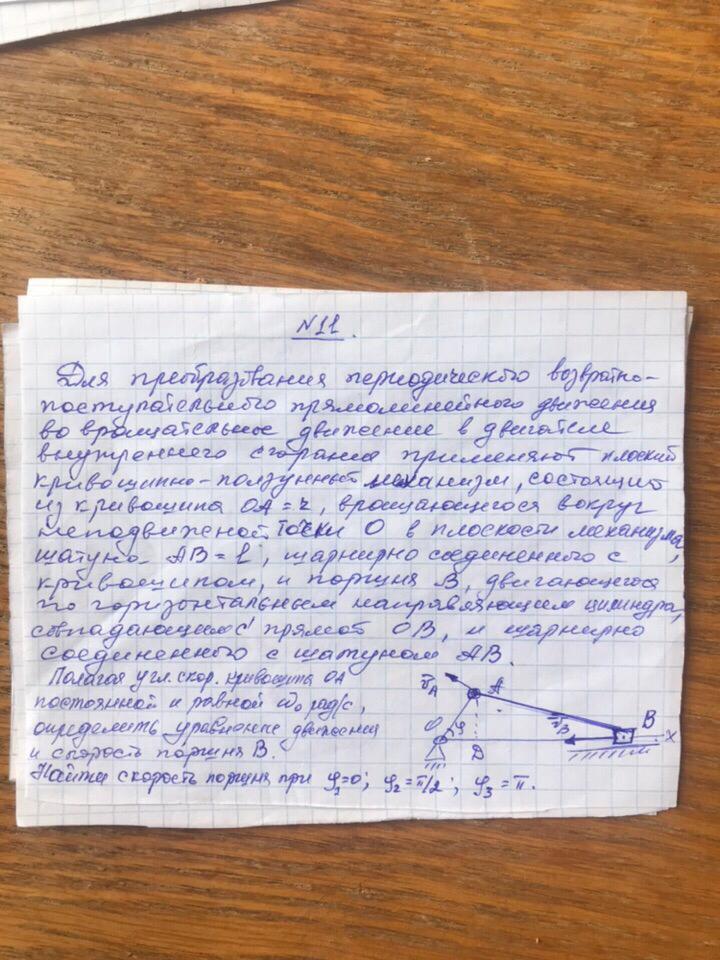 №11.
Для преобразования периодического возвратно-
поступательного прямолинейного движения
во вращательное движение в двигателе
внутреннего сгорания применяют плоский
кривошипно-ползунный механизм, состоящий
из кривошипа OA = r, вращающегося вокруг
неподвижной точки O в плоскости механизма,
шатуна AB = l, шарнирно соединенного с
кривошипом, и поршня B, двигающегося
по горизонтальным направляющим цилиндра,
совпадающим с прямой OB, и шарнирно
соединенного с шатуном AB.
Полагая угл. скор. кривошипа OA
постоянной и равной ω₀ рад/с,
определить уравнение движения
и скорость поршня B.
Найти скорость поршня при φ₁=0; φ₂=π/2; φ₃=π.
v̄A A
O φ D v̄B B x